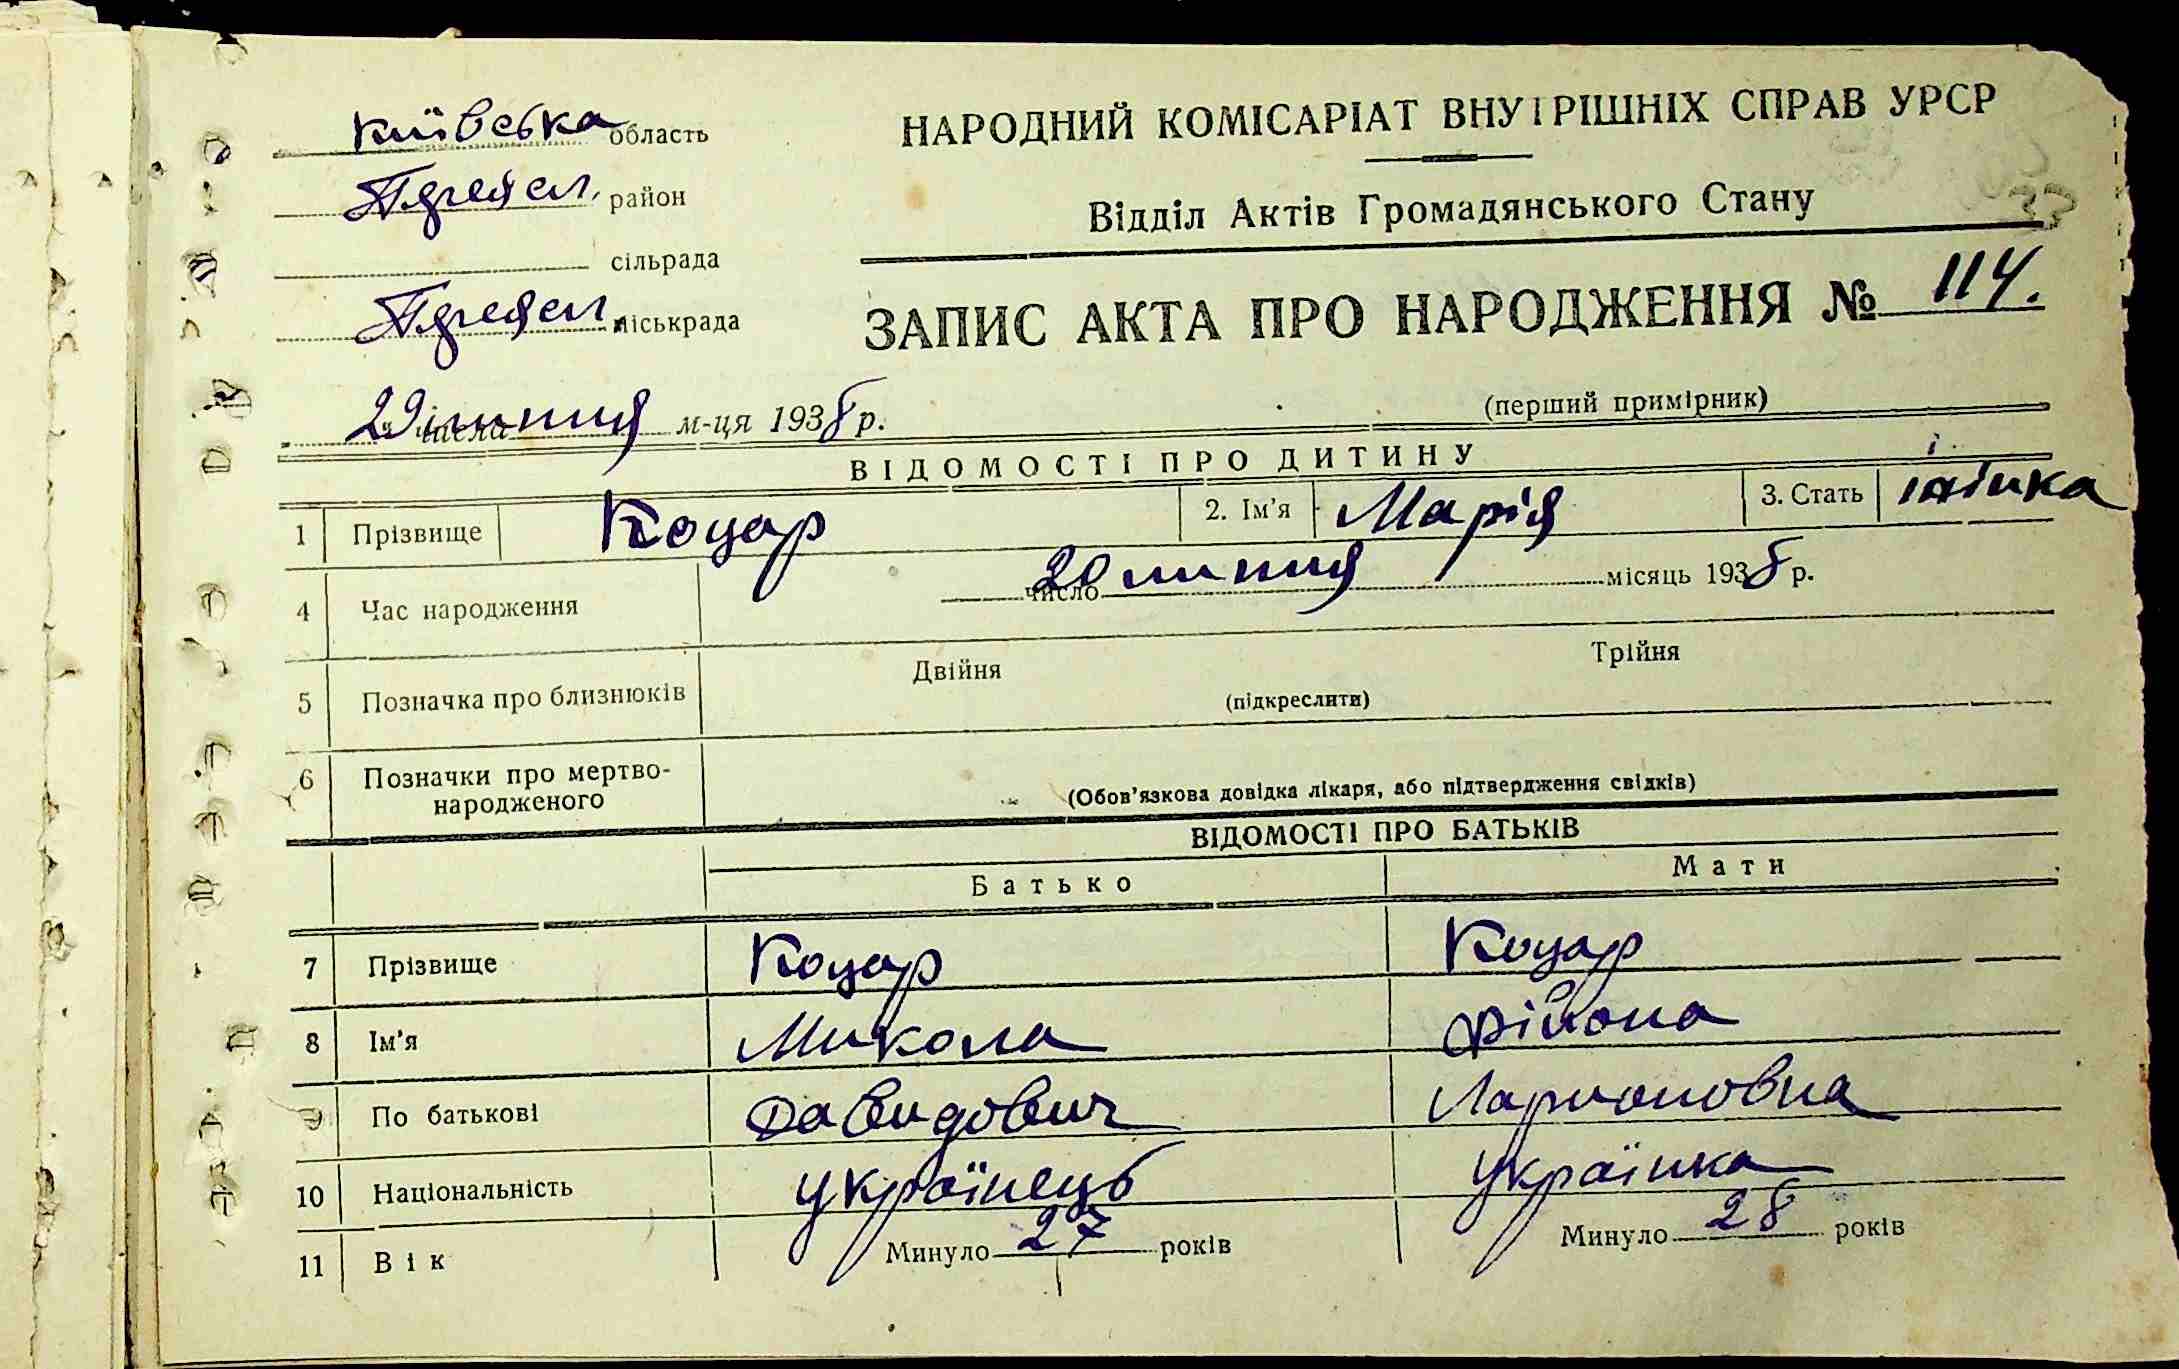 Київська область
НАРОДНИЙ КОМІСАРІАТ ВНУТРІШНІХ СПРАВ УРСР
район
Відділ Актів Громадянського Стану
сільрада
міськрада
ЗАПИС АКТА ПРО НАРОДЖЕННЯ № 114.
29 числа липня м-ця 1938 р.
(перший примірник)
ВІДОМОСТІ ПРО ДИТИНУ
1 Прізвище Коцар 2. Ім'я Марія 3. Стать жінка
4 Час народження 20 число липня місяць 1938 р.
5 Позначка про близнюків Двійня Трійня
(підкреслити)
6 Позначки про мертво-
народженого (Обов'язкова довідка лікаря, або підтвердження свідків)
ВІДОМОСТІ ПРО БАТЬКІВ
Батько Мати
7 Прізвище Коцар Коцар
8 Ім'я Микола
9 По батькові Давидович Ларионовна
10 Національність українець українка
11 Вік Минуло 27 років Минуло 28 років